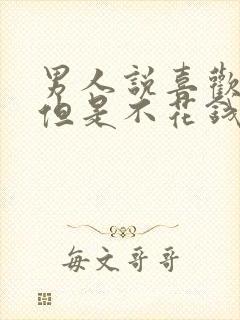 男人說喜歡
但是不花錢
每文哥哥